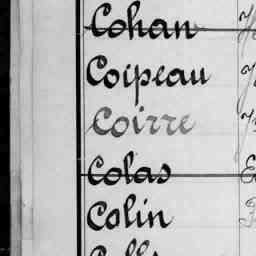 Cohan
Coipeau
Coirre
Colas
Colin